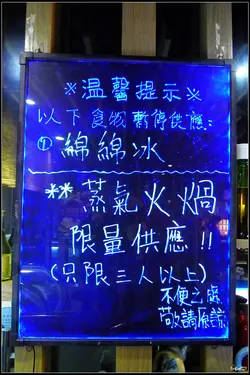 ※溫馨提示※
以下食物暫停供應:
①綿綿冰
**蒸氣火焗
限量供應!!
(只限三人以上)
不便之處
敬請原諒